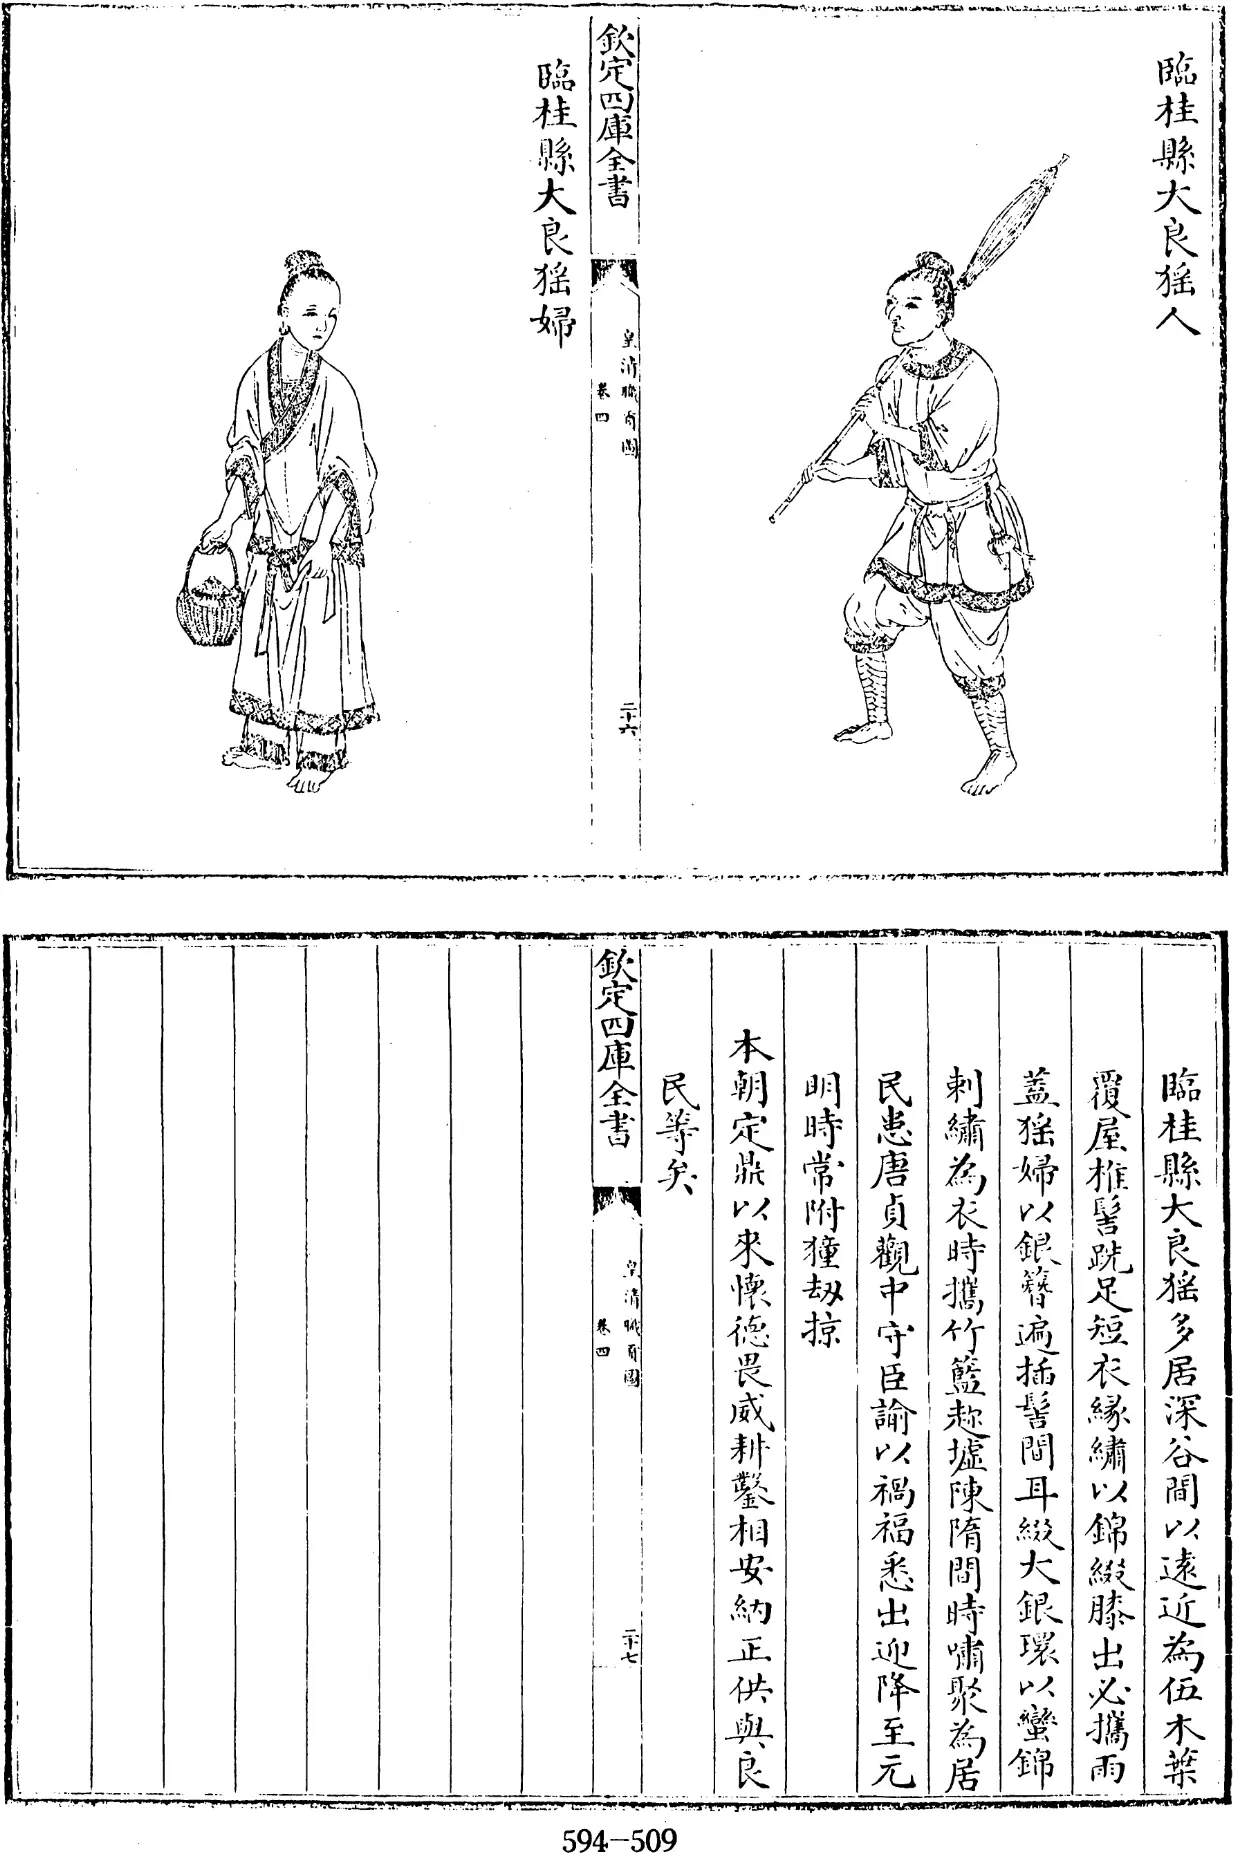 臨桂縣大良猺人
欽定四庫全書
皇清職貢圖
卷四
二十六
臨桂縣大良猺婦
臨桂縣大良猺多居深谷間以遠近為伍木葉
覆屋椎髻跣足短衣緣繡以錦綴膝出必攜雨
蓋猺婦以銀簪遍插髻間耳綴大銀環以蠻錦
刺繡為衣時攜竹籃趂墟陳隋間時嘯聚為居
民患唐貞觀中守臣諭以禍福悉出迎降至元
明時常附獞刼掠
本朝定鼎以來懷德畏威耕鑿相安納正供與良
民等矣
欽定四庫全書
皇清職貢圖
卷四
二十七
594-509